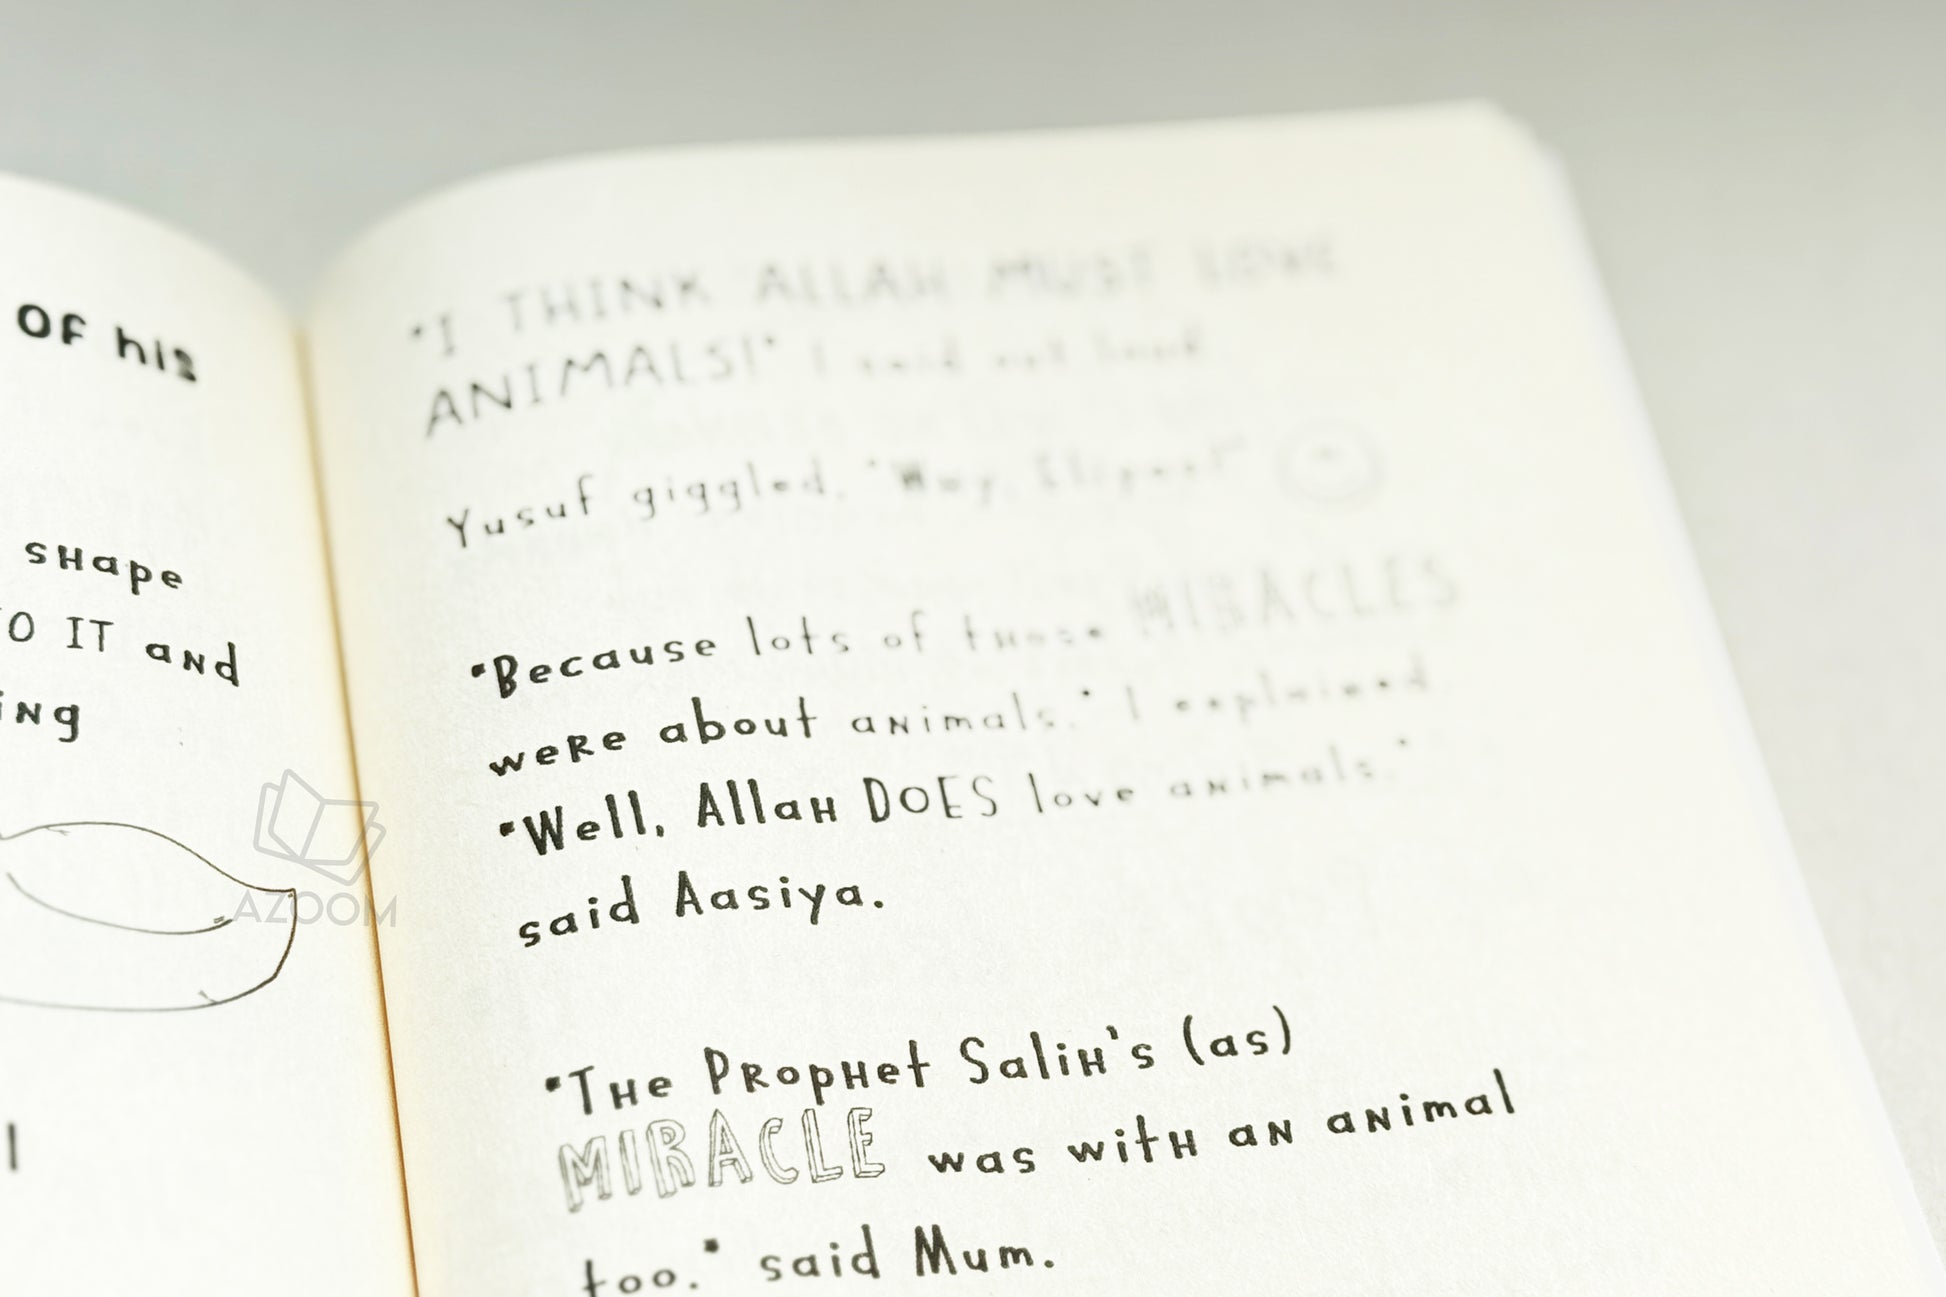 OF his
shape
O IT and
ing
AZOOM
I
"I THINK ALLAH MUST LOVE
ANIMALS!" I said out loud.
Yusuf giggled, "Why,
"Because lots of those MIRACLES
were about animals." I explained.
"Well, Allah DOES love animals."
said Aasiya.
"The Prophet Salih's (as)
MIRACLE was with an animal
too." said Mum.